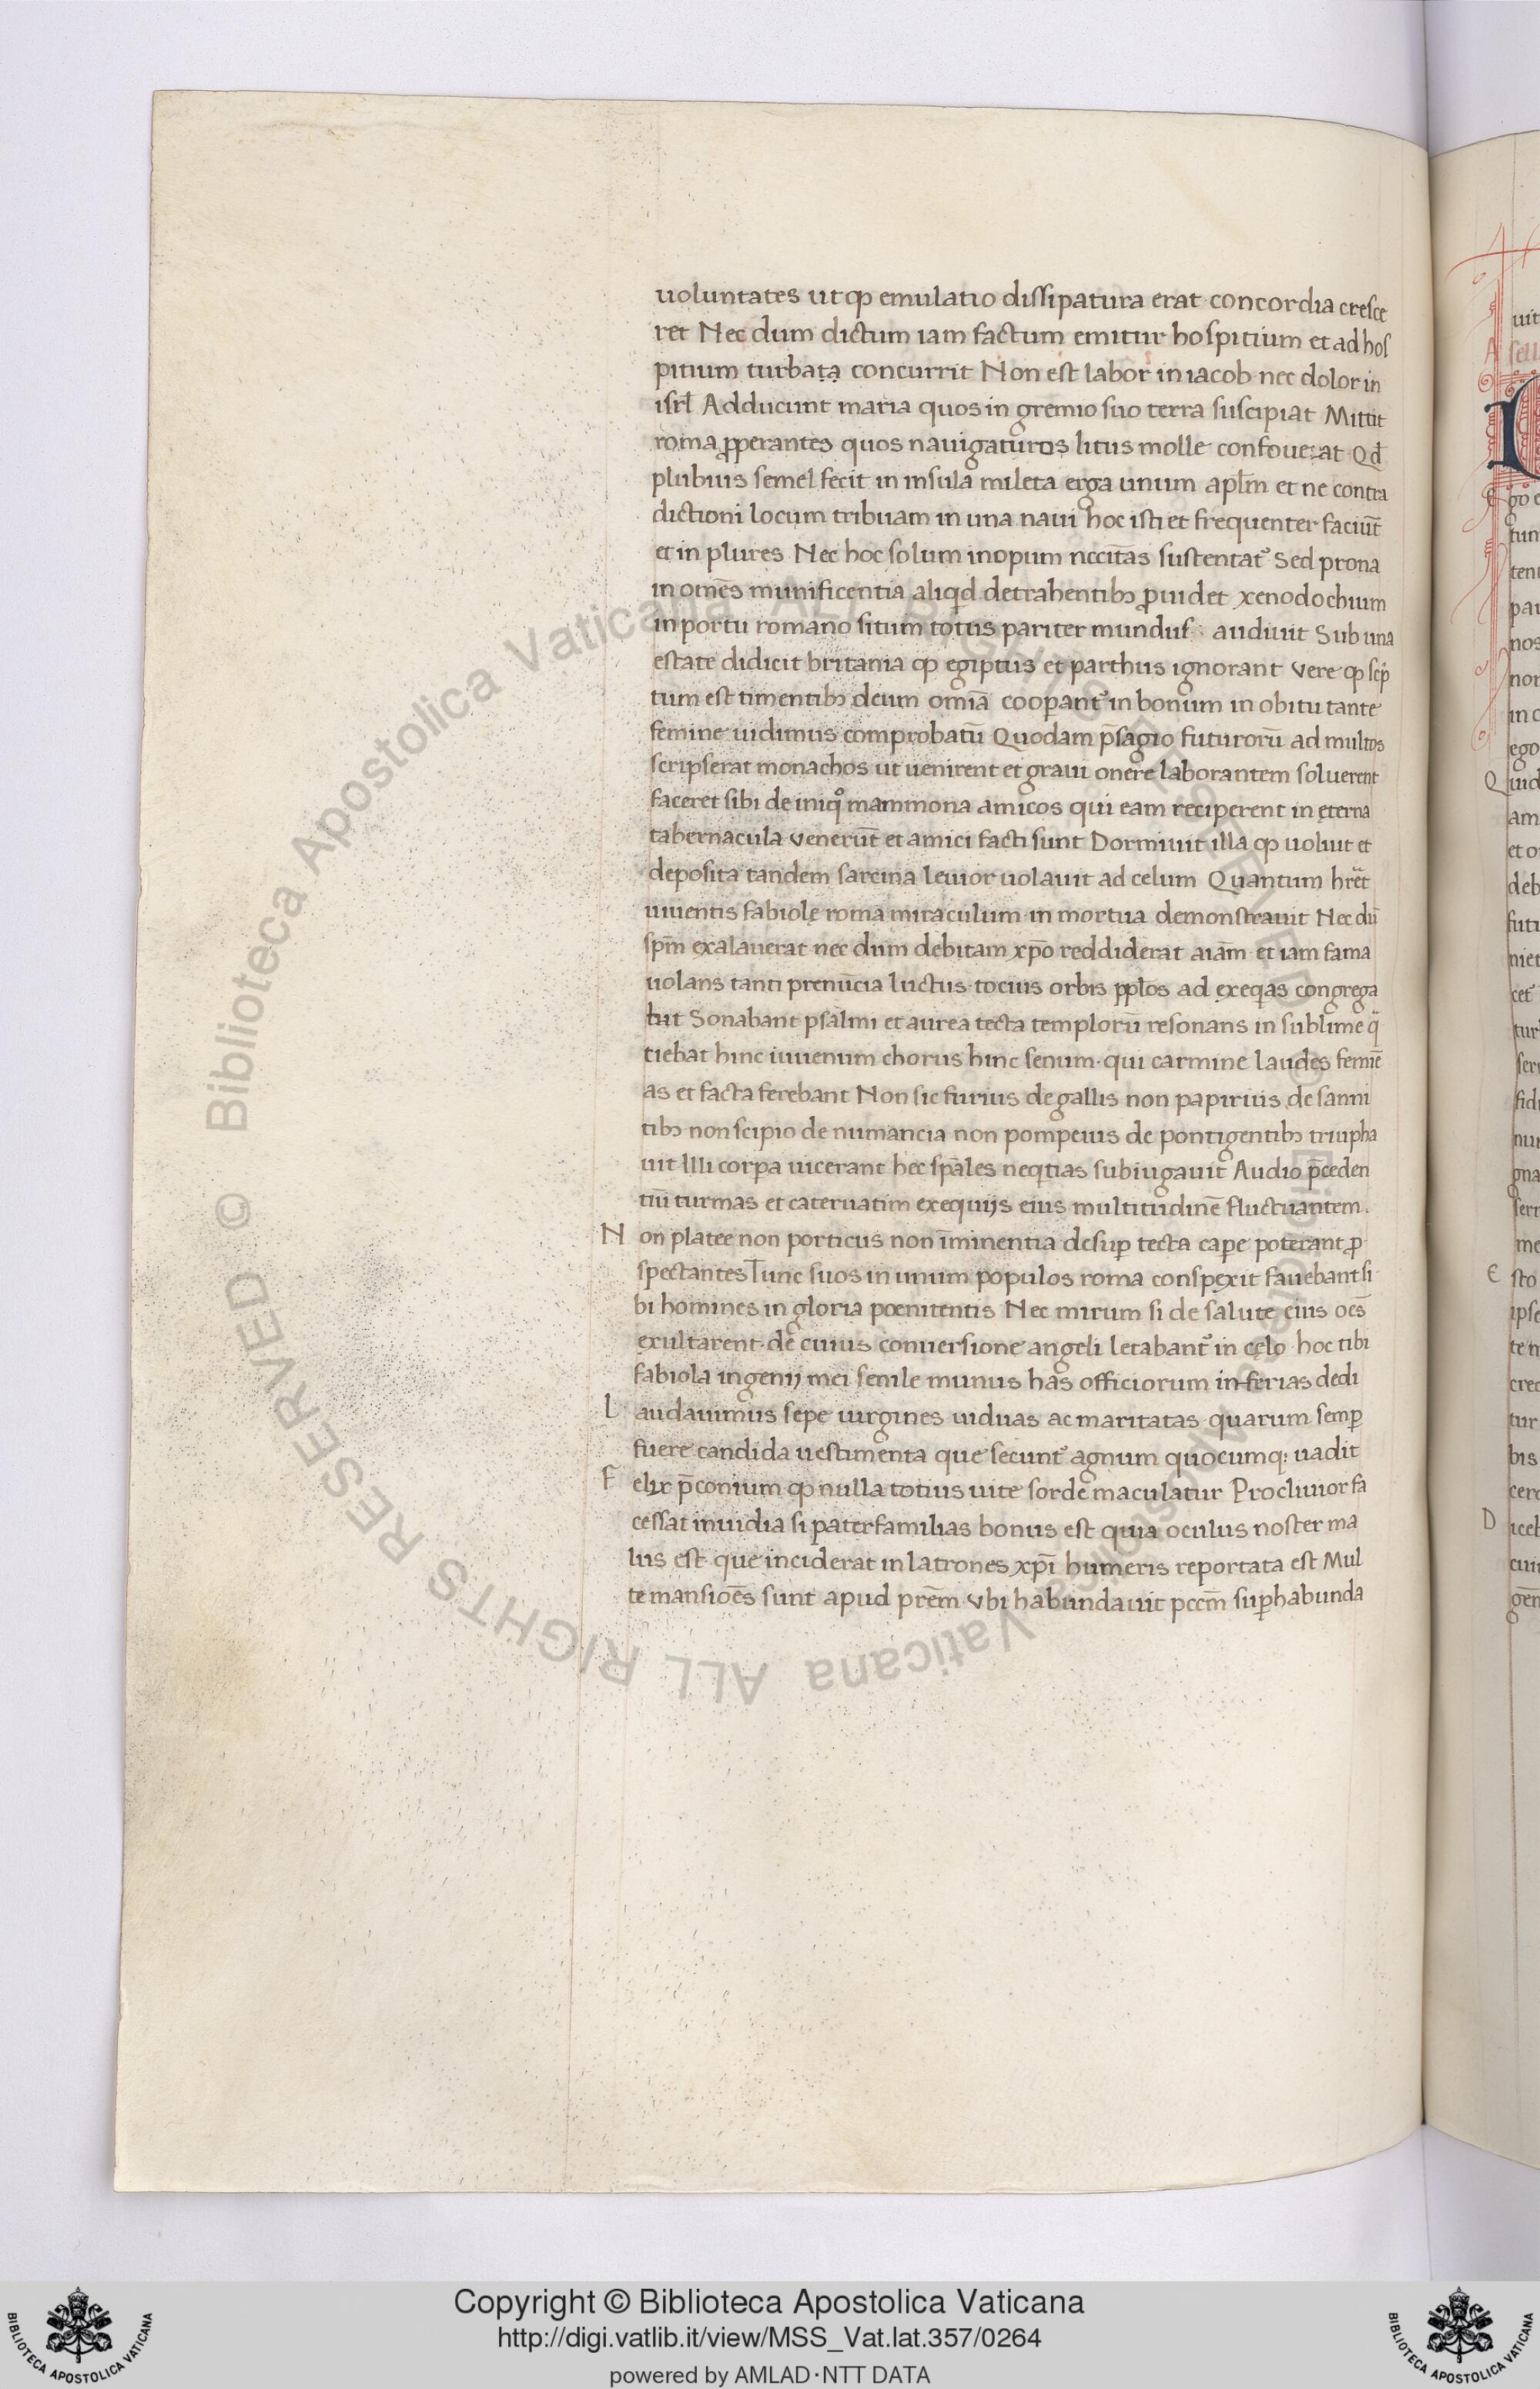 uoluntates ut qꝫ emulatio dissipatura erat concordia cresce
ret Nec dum dictum iam factum emitur hospitium et ad hos
pitium turbata concurrit Non est labor in iacob nec dolor in
isrl̄ Adducunt maria quos in gremio suo terra suscipiat Mittit
roma ꝓperantes quos nauigaturos litus molle confoueat Qd̄
plubius semel fecit in insula mileta erga unum apl̄m et ne contra
dictioni locum tribuam in una naui hoc isti et frequenter faciūt
et in plures Nec hoc solum inopum nccītas sustentat᷒ Sed prona
in omēs munificentia aliqd detrahentibꝫ ꝓuidet xenodochium
in portu romano situm totus pariter mundus audiuit Sub una
estate didicit britania qꝫ egiptus et parthus ignorant Vere qꝫ scͥp
tum est timentibꝫ deum omīa coopant᷒ in bonum in obitu tante
femine uidimus comprobatū Quodam p̄sagio futurorū ad multos
scripserat monachos ut uenirent et graui onere laborantem soluerent
faceret sibi de iniqͦ mammona amicos qui eam reciperent in ęterna
tabernacula Venerūt et amici facti sunt Dormiuit illa qꝫ uoluit et
deposita tandem sarcina leuior uolauit ad celum Quantum hr̄et
uiuentis fabiolę roma miraculum in mortua demonstrauit Nec dū
sp̄m exalauerat nec dum debitam xp̄o reddiderat aiām et iam fama
uolans tanti prenūcia luctus tocius orbis pplōs ad exeqͥas congrega
bat Sonabant psalmi et aurea tecta templorū resonans in sublime qͣ
tiebat hinc iuuenum chorus hinc senum qui carmine laudes femiē
as et facta ferebant Non sic furius de gallis non papirius de samni
tibꝫ non scipio de numancia non pompeius de pontigentibꝫ triūpha
uit Illi corꝑa uicerant hec spāles neqͥtias subiugauit Audio p̄ceden
tiū turmas et cateruatim exequijs eius multitudinē fluctuantem
Non platee non porticus non īminentia desuꝑ tecta caꝑe poterant ꝓ
spectantes Tunc suos in unum populos roma conspexit fauebant si
bi homines in gloria poenitentis Nec mirum si de salute eius oēs
exultarent de cuius conuersione angeli letabant᷒ in cęlo hoc tibi
fabiola ingenij mei senile munus has officiorum inferias dedi
Laudauimus sepe uirgines uiduas ac maritatas quarum semꝑ
fuere candida uestimenta que secunt᷒ agnum quocumqꝫ uadit
Felix p̄conium qꝫ nulla totius uite sorde maculatur Procliuior fa
cessat inuidia si paterfamilias bonus est quia oculus noster ma
lus est que inciderat in latrones xp̄i humeris reportata est Mul
te mansioēs sunt apud prēm Vbi habundauit pccm̄ suꝑhabunda
Biblioteca Apostolica Vaticana ALL RIGHTS RESERVED ©
Copyright © Biblioteca Apostolica Vaticana
http://digi.vatlib.it/view/MSS_Vat.lat.357/0264
powered by AMLAD·NTT DATA
BIBLIOTECA APOSTOLICA VATICANA
BIBLIOTECA APOSTOLICA VATICANA